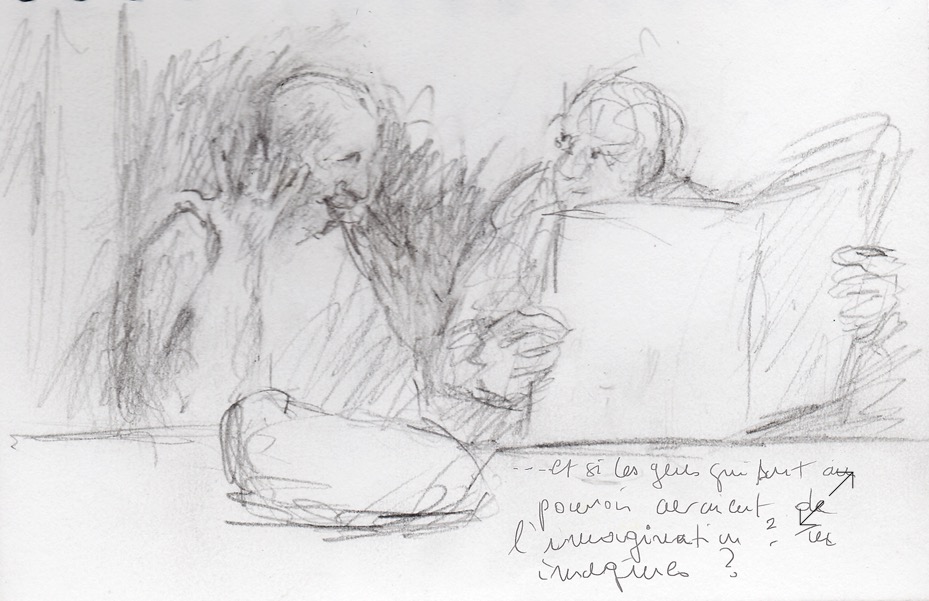 ---et si les gens qui sont au
pouvoir avaient de
l'imagination ? tu
imagines ?